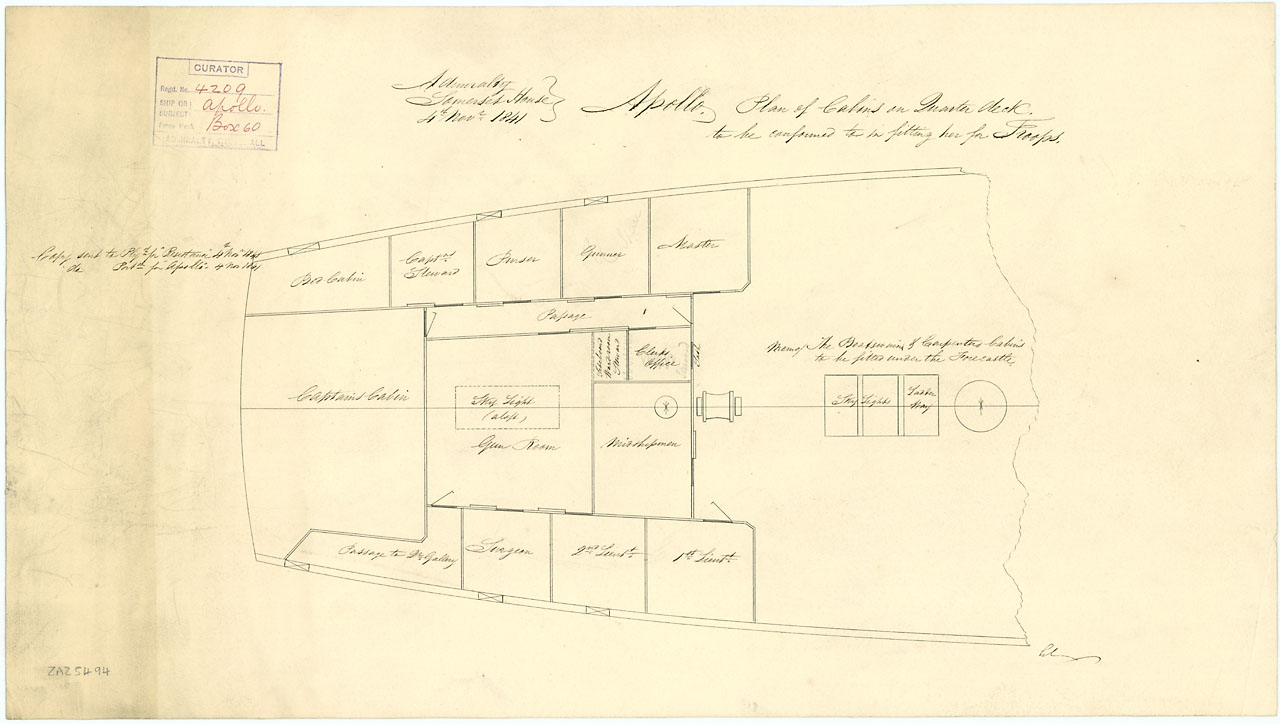 CURATOR
Regd. No. 4209
SHIP OR SUBJECT Apollo.
Box 60
Admiralty
Somerset House
4th Novr 1841
Apollo. Plan of Cabins on Quarter deck.
to be conformed to in fitting her for Troops.
Copy sent to Plyth for "Resistance" 4th Novr 1841
Do Portsth for "Apollo" 4 Nov 1841
Bed Cabin
Capt's
Steward
Purser
Gunner
Master
Passage
Wardroom
Steward
Clerks
Office
Seat
Memo/ The Boatswain's & Carpenters Cabins
to be fitted under the Forecastle
Captains Cabin
Sky Light
(aloft)
Gun Room
Midshipmen
Sky Lights
Ladder
Way
Passage to Qr Gallery
Surgeon
2nd Lieutt
1st Lieutt
ZAZ5494